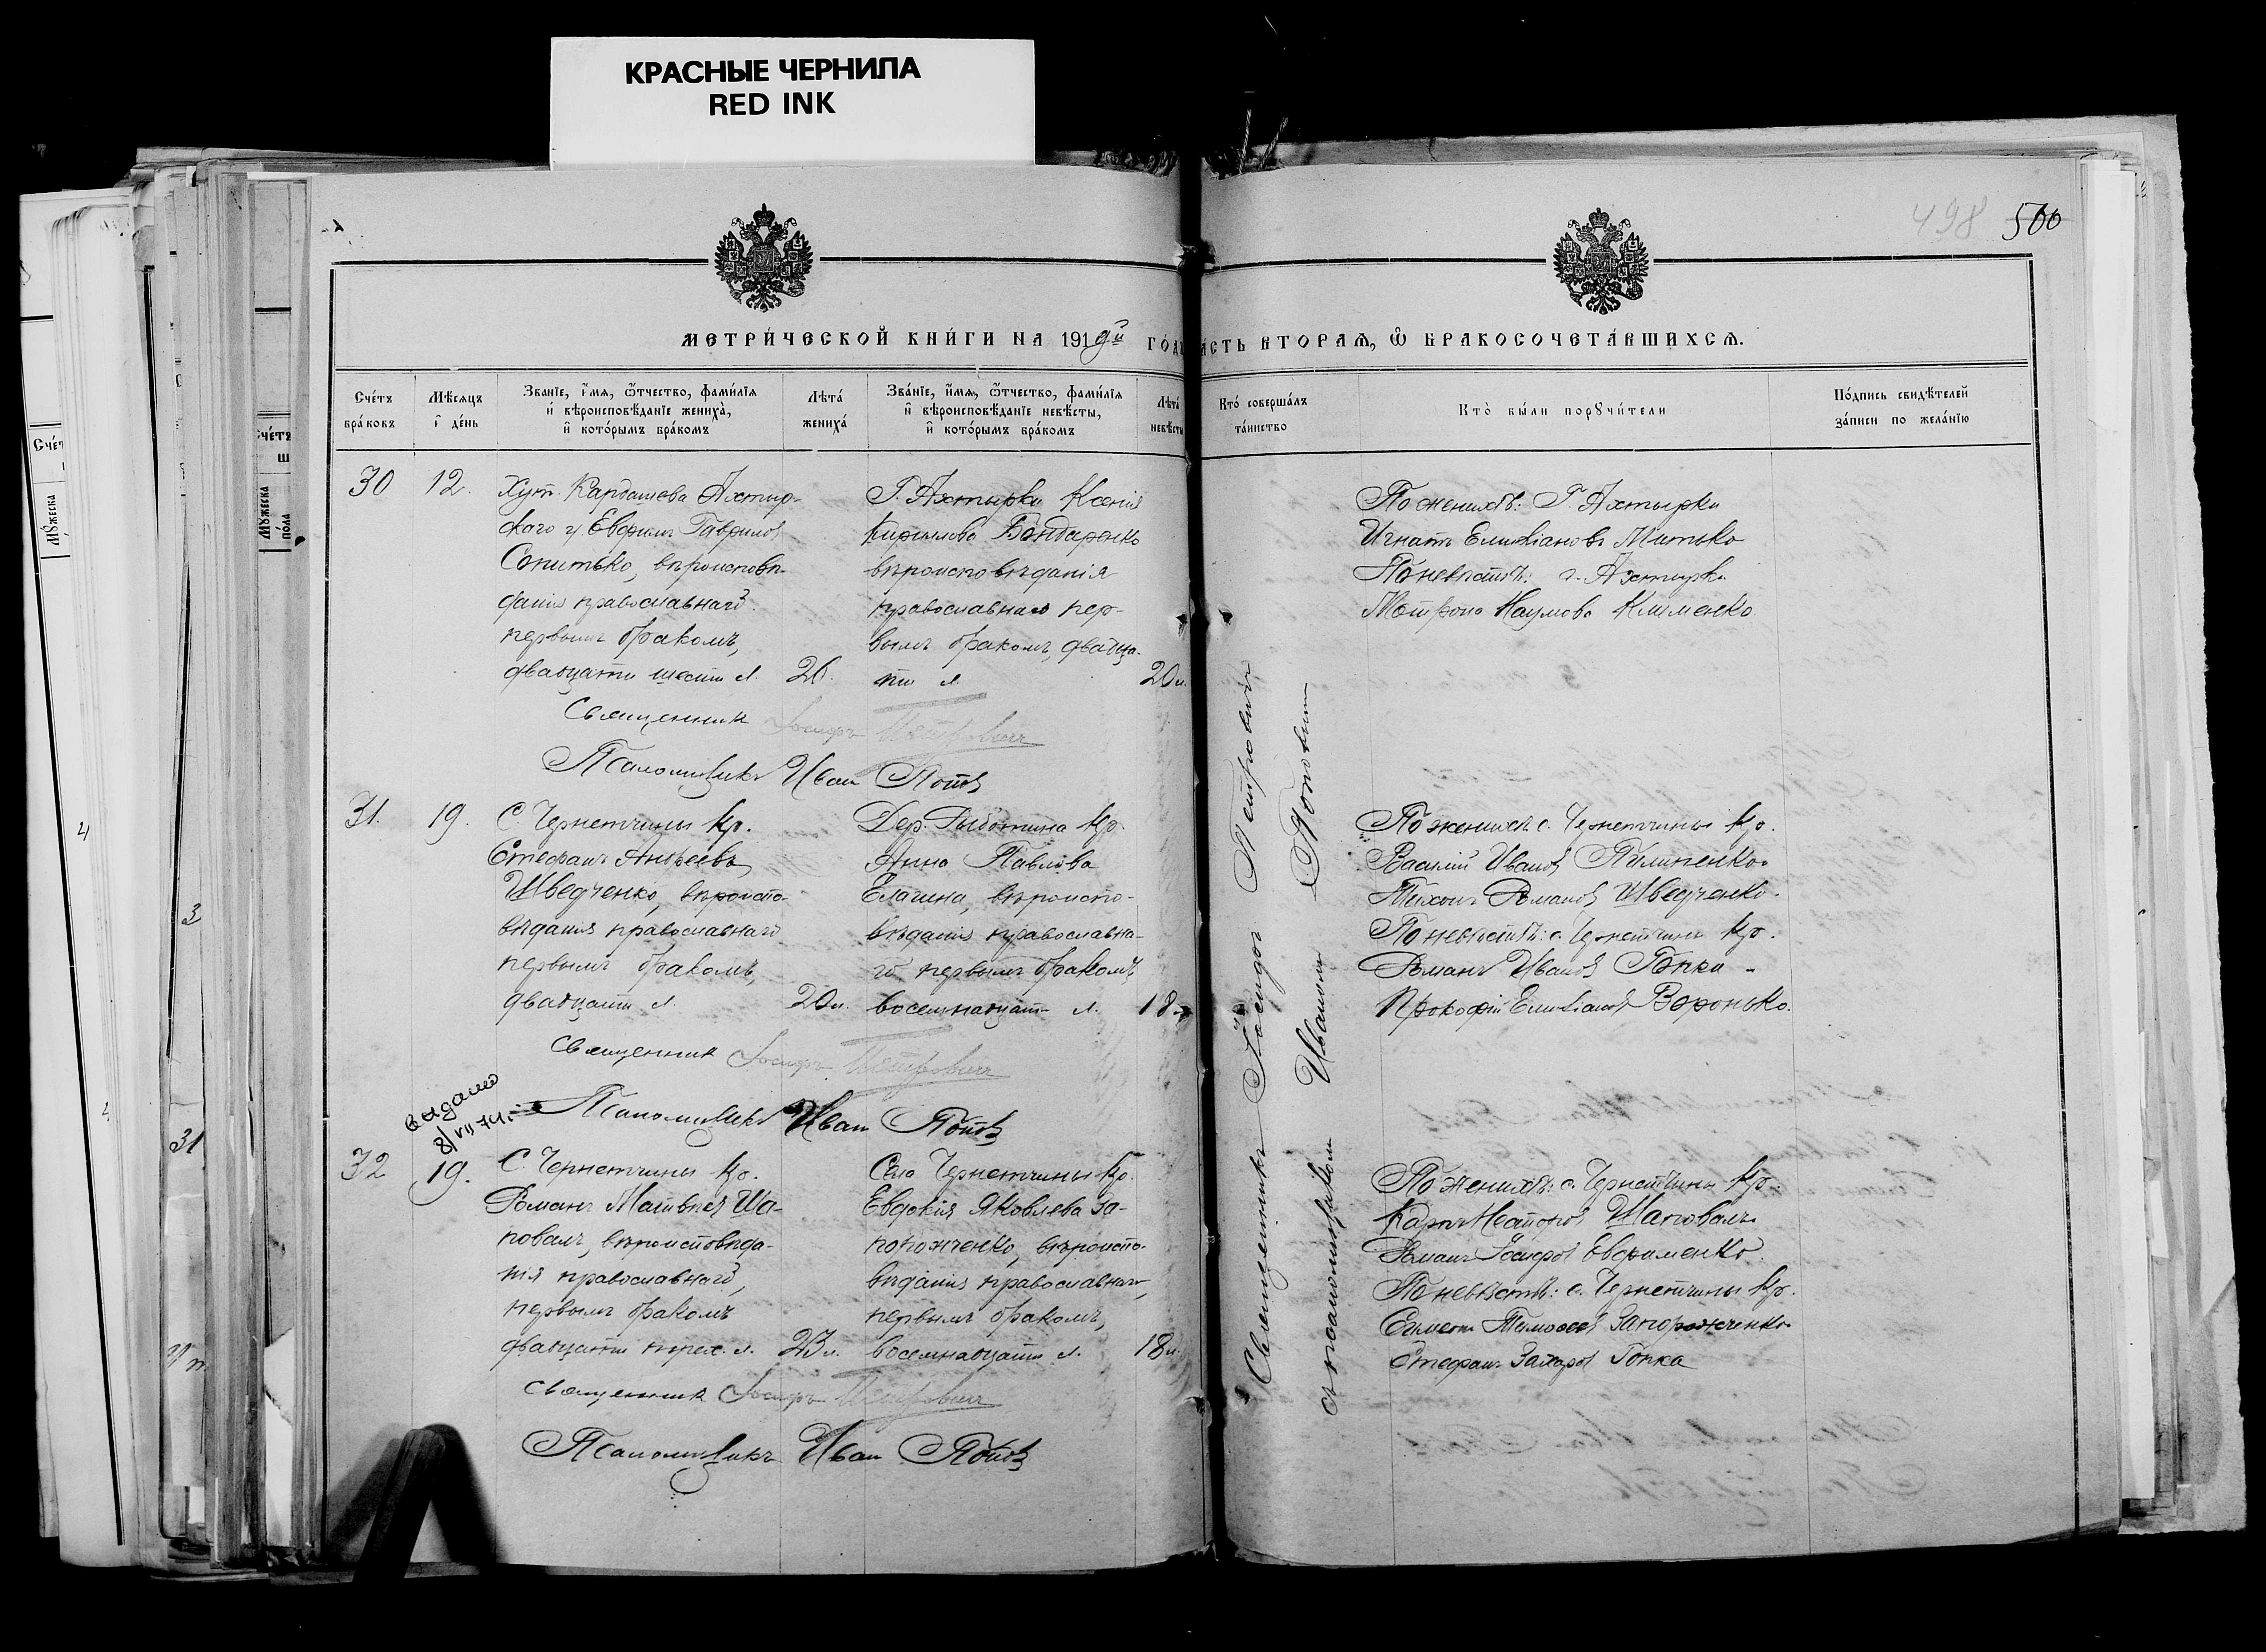 КРАСНЫЕ ЧЕРНИЛА
RED INK
498 500
МЕТРИ́ЧЕСКОЙ КНИ́ГИ НА 1919й ГО́ДЪ
ЧАСТЬ ВТОРАѦ, Ѽ БРАКОСОЧЕТА́ВШИХСѦ.
Сче́тъ бра́ковъ
Мѣ́сяцъ и де́нь
Зва́нїе, и҆́мѧ, ѻ҆́тчество, фами́лїя и҆ вѣроисповѣ́данїе жениха̀, и҆ кото́рымъ бра́комъ
Лѣта̀ жениха̀
Зва́нїе, и҆́мѧ, ѻ҆́тчество, фами́лїя и҆ вѣроисповѣ́данїе невѣ́сты, и҆ кото́рымъ бра́комъ
Лѣта̀ невѣ́сты
Кто̀ соверша́лъ та́инство
Кто̀ бы́ли порꙋчи́тели
По́дпись свидѣ́телей за́писи по жела́нїю
30
12.
Хут. Кардашева Ахтыр-
скаго у. Евфимъ Гаврилов
Сопитько, вѣроисповѣ-
данія православнаго
первымъ бракомъ,
двадцати шести л.
26.
Г. Ахтырки Ксенія
Кириллова Бондаренко
вѣроисповѣданія
православнаго пер-
вымъ бракомъ, двадца-
ти л.
20 л.
Священник Іосифъ Петровичъ
Псаломщикъ Иван Попов
По женихѣ: Г. Ахтырки
Игнатъ Емиліановъ Митько
По невѣстѣ: г. Ахтырки
Матрона Наумова Клименко
31.
19.
С. Чернетчины кр.
Стефанъ Андреевъ
Шведченко, вѣроиспо-
вѣданія православнаго
первымъ бракомъ,
двадцати л.
20 л.
Дер. Рыботина кр.
Анна Павлова
Елагина, вѣроиспо-
вѣданія православна-
го первымъ бракомъ
восемнадцати л.
18 л.
Священник Іосифъ Петровичъ
Псаломщикъ Иван Попов
По женихѣ с. Чернетчины кр.
Василій Иванов Пилипенко
Тихонъ Романов Шведченко.
По невѣстѣ: с. Чернетчины кр.
Романъ Иванов Гопка
Прокофій Емиліанов Воронько.
выдано
8/VII 74 г.
32
19.
С. Чернетчины кр.
Романъ Матвѣев Ша-
повалъ, вѣроисповѣда-
нія православнаго,
первымъ бракомъ
двадцати трех л.
23 л.
Село Чернетчины кр.
Евдокія Яковлева За-
порожченко, вѣроиспо-
вѣданія православнаго,
первымъ бракомъ,
восемнадцати л.
18 л.
Священник Іосифъ Петровичъ
Псаломщикъ Иван Попов
По женихѣ: с. Чернетчины кр.
Карпъ Шаповалъ
Романъ Іосифов Евфименко.
По невѣстѣ: с. Чернетчины кр.
Запорожченко
Стефанъ Захаров Гопка
Священникъ Іосифъ Петровичъ
съ псаломщикомъ Иваномъ Поповымъ